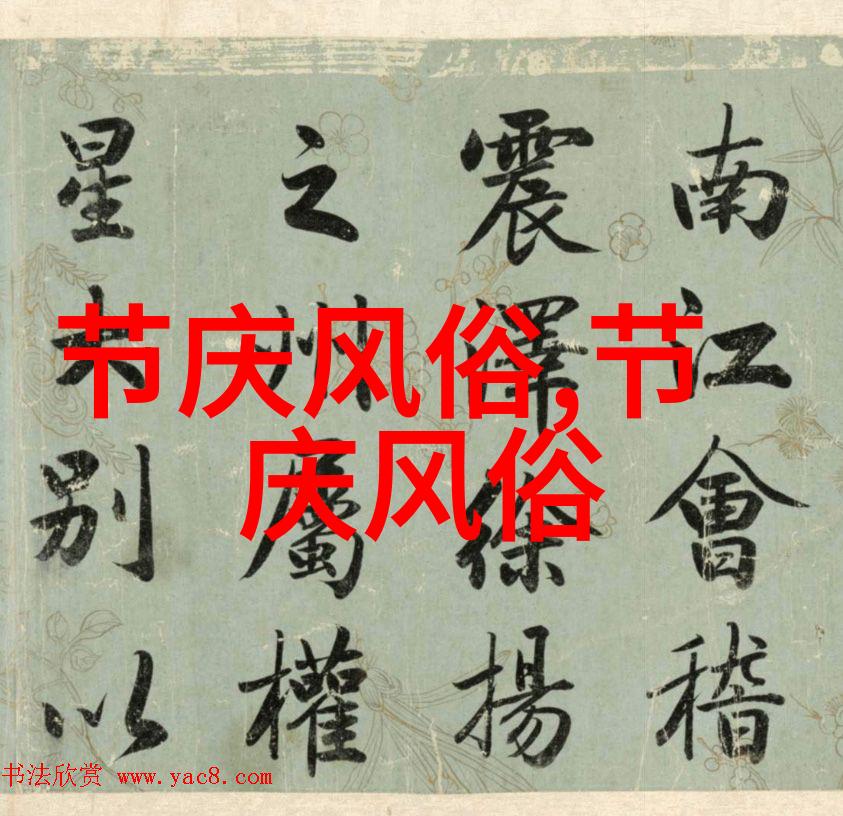 南江會稽
震澤徐揚
之州屬權
星別以
节庆风俗,节
庆风俗
书法欣赏 www.yac8.com